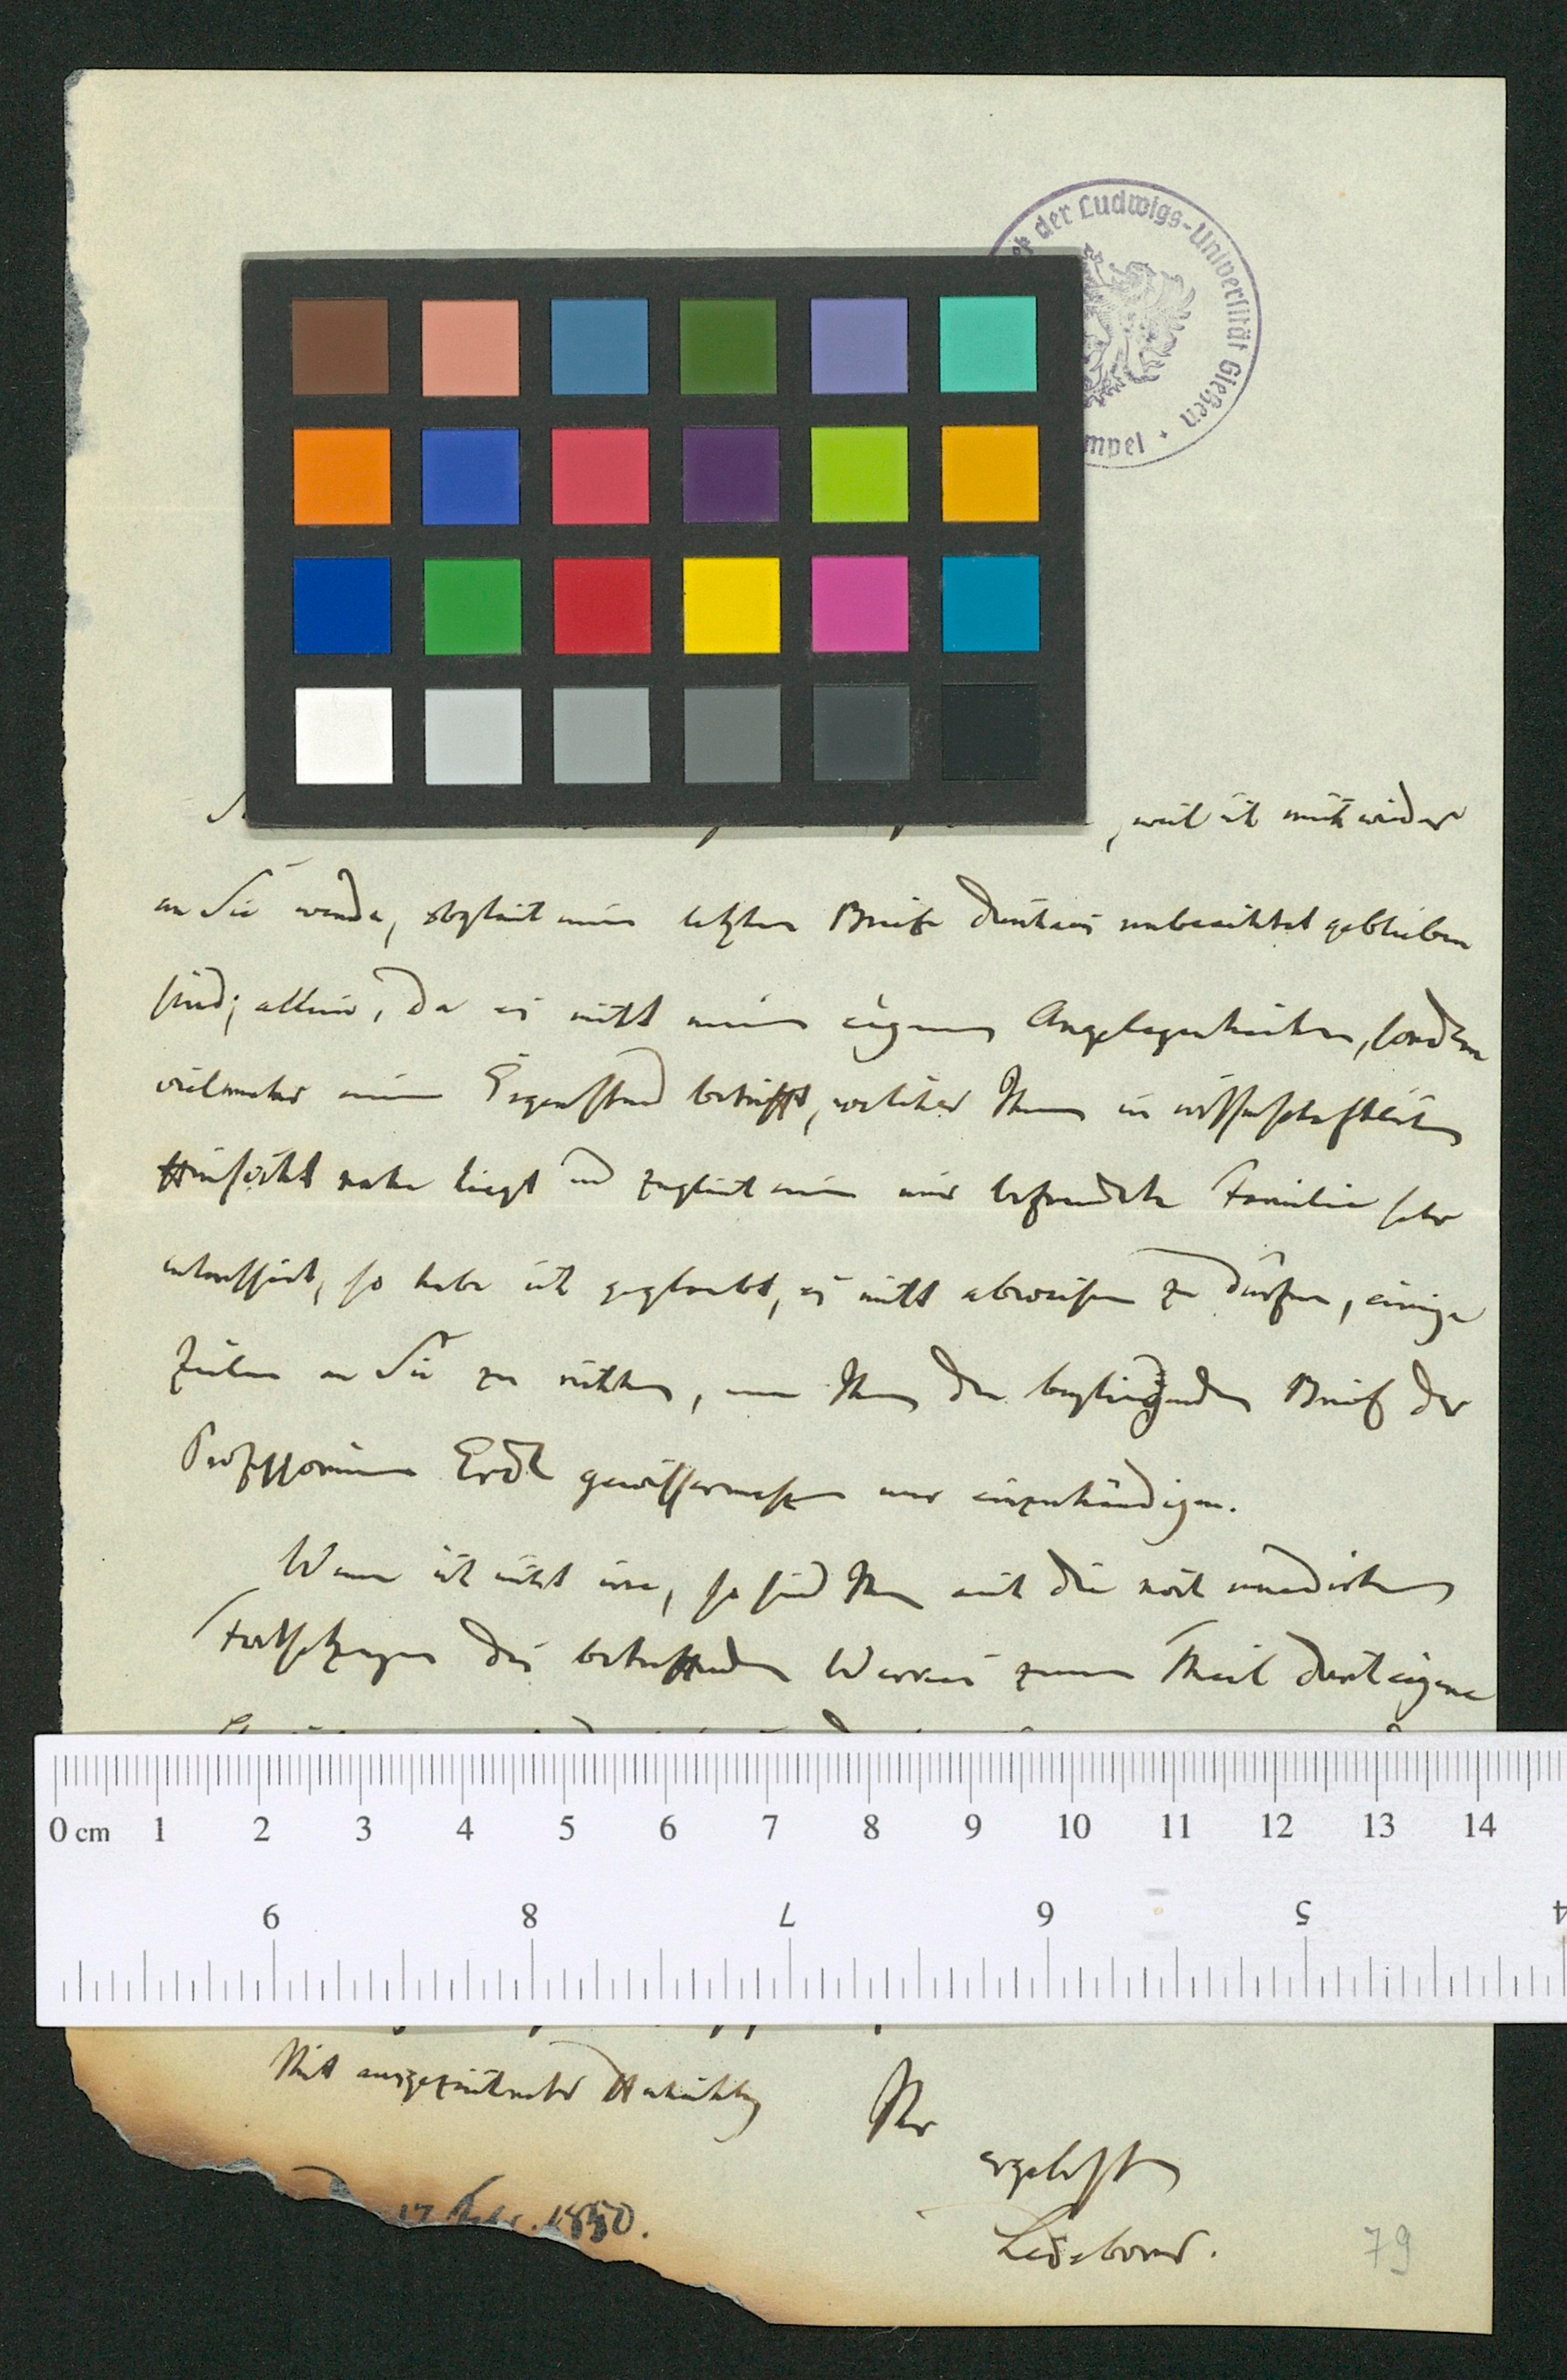 der Ludwigs-Universität Gießen
, weil ich mich wieder
an Sie wende, obgleich meine letzten Briefe durchaus unbeachtet geblieben
sind; allein, da es nicht meine eigenen Angelegenheiten, sondern
vielmehr einen Gegenstand betrifft, welcher Ihnen in wissenschaftlicher
Hinsicht nahe liegt und zugleich eine mir befreundete Familie sehr
interessirt, so habe ich geglaubt, es nicht abweisen zu dürfen, einige
Zeilen an Sie zu richten, um Ihnen den beyliegenden Brief der
Professorinn Erdl gewissermaßen nur einzuhändigen.
Wenn ich nicht irre, so sind Ihnen auch die noch unedirten
Fortsetzungen des betreffenden Werkes zum Theil durch eigene
0 cm 1 2 3 4 5 6 7 8 9 10 11 12 13 14
9 8 7 6 5 4
Mit ausgezeichneter Hochachtung
Ihr
ergebenster
17 Febr. 1850.
Ledebour.
79